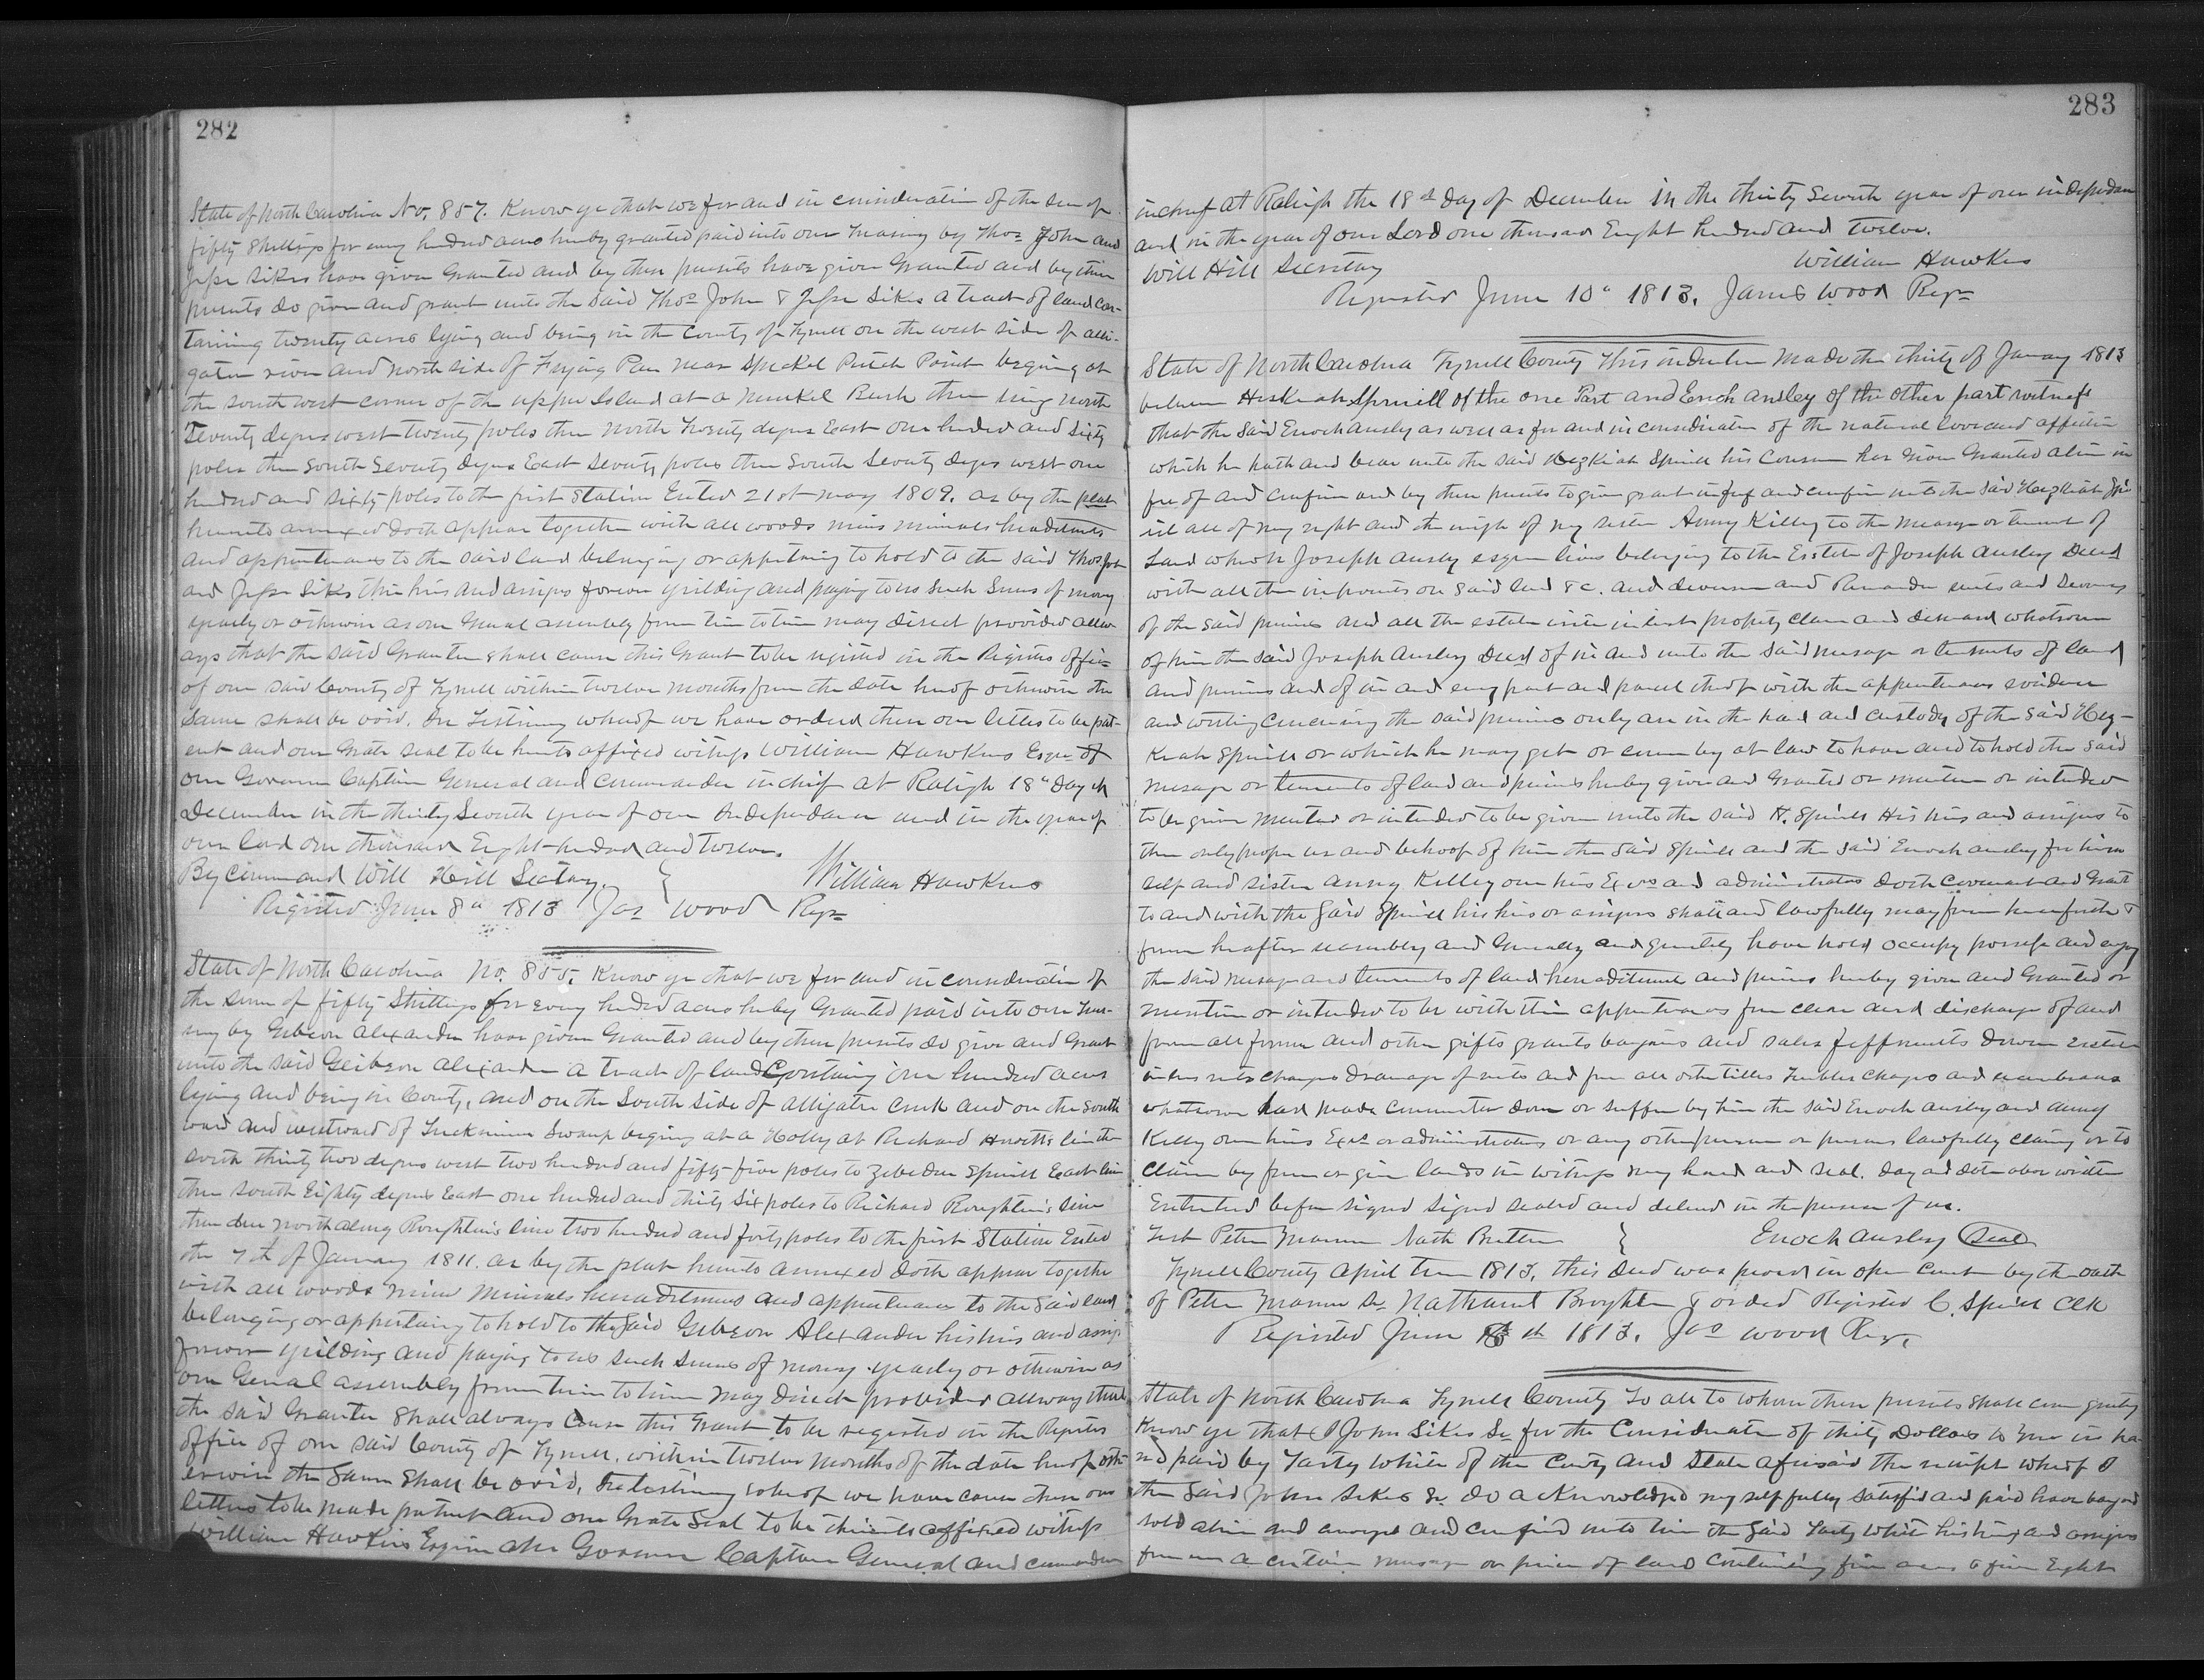 282
State of North Carolina No. 857. Know ye that we for and in consideration of the sum of
fifty shillings for every hundred acres hereby granted paid into our Treasury by Thos John and
Jesse Sikes have given Granted and by these presents have given Granted and by these
presents do give and grant unto the said Thos John & Jesse Sikes a tract of land con-
taining twenty acres lying and being in the County of Tyrrell on the west side of alli-
gator river and north side of Frying Pan near Speckel Point begining at
the south west corner of the upper Island at a Bush then north
Seventy degrees west twenty poles then north twenty degrees East one hundred and sixty
poles then South Seventy degrees East Seventy poles then South Seventy degrees west one
hundred and sixty poles to the first Station Entered 21st may 1809. as by the plat
hereunto annexed doth appear together with all woods mines minerals hereditements
and appurtenances to the said land belonging or appertaining to hold to the said Thos John
and Jesse Sikes their heirs and assigns forever yeilding and paying to us such sums of money
yearly or otherwise as our General assembly from time to time may direct provided allw
ays that the said Grantee shall cause this Grant to be registed in the Registers office
of our said County of Tyrrell within twelve months from the date hereof otherwise the
same shall be void. In Testimony whereof we have ordered these our letters to be pat-
ent and our Grate seal to be hereunto affixed witness William Hawkins Esqr of
our Governor Captain General and Commander in chief at Raleigh 18th Day of
December in the thirty Seventh year of our Independance and in the year of
our lord one thousand Eight hundred and twelve.
By Command Will Hill Sectary. } William Hawkins
Registed June 8th 1813 Jas Wood Regr
State of North Carolina No. 855. Know ye that we for and in consideration of
the sum of fifty Shillings for every hundred acres hereby Granted paid into our Trea-
sury by Gibson Alexander have given Granted and by these presents do give and Grant
unto the said Geibson Alexander a tract of land Containing one hundred acres
lying and being in County, and on the South side of alligator creek and on the South
ward and westward of Swamp begining at a Holly at Richard line then
south thirty two degrees west two hundred and fifty five poles to Zebedee Spruill East line
then south Eighty degrees East one hundred and thirty Six poles to Richard Roughton's line
then due north along Roughton's line two hundred and forty poles to the first Station Entered
the 7th of January 1811. as by the plat hereunto annexed doth appear together
with all woods mines Minerals hereaditements and appurtenances to the said land
belonging or appertaining to hold to the said Gibson Alexander his heirs and assigns
forever yeilding and paying to us such sums of money yearly or otherwise as
our General assembly from time to time may direct provided allways that
the said Grantee Shall always Cause this Grant to be registed in the Registers
office of our said County of Tyrrell, within twelve Months of the date hereof oth
erwise the same Shall be void, In testimony whereof we have cause these our
letters to be made patent and our Grate Seal to be thereunto affixed witness
William Hawkins Esquire our Governor Captain General and commander
283
in chief at Raleigh the 18th Day of December in the thirty Seventh year of our independance
and in the year of our Lord one thousand Eight hundred and twelve.
Will Hill Secretary William Hawkins
Registed June 10th 1813. James Wood Regr
State of North Carolina Tyrrell County This indenture Made the thirty of January 1813
between Heskiah Spruill of the one Part and Enoch ansley of the other part witness
that the said Enoch ansley as well as for and in consideration of the natural love and affection
which he hath and bear unto the said Hezkiah Spruill his Cousen has given Granted alien in
fee of and confirm and by these presents to give grant infeof and confirm unto the said Hezkiah Spru
ill all of my right and the right of my sister Anny Killey to the mesage or tenement of
Land where Joseph ansley esquire lives belonging to the Esstate of Joseph ansley Deed
with all the improvements on said land &c. and and Remainder rents and
of the said premises and all the estate interest property claim and demand whatsoever
of him the said Joseph Ansley Deed of in and unto the said mesage or tenements of land
and premises and of in and every part and parcel thereof with the appurtenances evidence
and writing concerning the said premises only are in the hand and custody of the said Hez-
kiah Spruill or which he may get or come by at law to have and to hold the said
mesage or tenements of land and premises hereby given and Granted or mention or intended
to be given mented or intended to be given unto the said H. Spruill His heirs and assigns to
the only proper use and behoof of him the said Spruill and the said Enoch ansley for him
self and sister anny Killey our heirs Exors and administrators doth Covenant and Grant
to and with the said Spruill his heirs or assigns shall and lawfully may from henceforth &
from hereafter and and have hold occupy possess and enjoy
the said mesage and tenements of land hereaditement and premises hereby given and Granted or
mention or intended to be with their appurtenances free clear and discharge of and
from all former and other gifts grants bargains and sales
charges and from all other titles troubles charges and
whatsoever had made commited done or suffer by him the said Enoch ansley and anny
Killey our heirs Exrs or administrators or any other person or persons lawfully claiming or to
claim by from or witness my hand and seal. day and date above written
Enterlined before signed signed sealed and deliverd in the presence of us.
Test Peter Nath } Enoch Ansley Seal
Tyrrell County April term 1813, this deed was proved in open Court by the oath
of Peter Nathaniel & orded Registed C. Spruill Clk
Registed June 1813. Jas Wood Reg.
State of North Carolina Tyrrell County To all to whom these presents shall come greeting
Know ye that I John Sikes Sr for the Consideration of thirty Dollars to me in ha
nd paid by White of the County and State aforesaid the receipt whereof I
the said John Sikes Sr do acKnowledged my self fully satisfid and paid have bargand
sold alien and and confirmed unto him the said White his heirs and assigns
a certain mesage or peice of land Containing five acres Eight